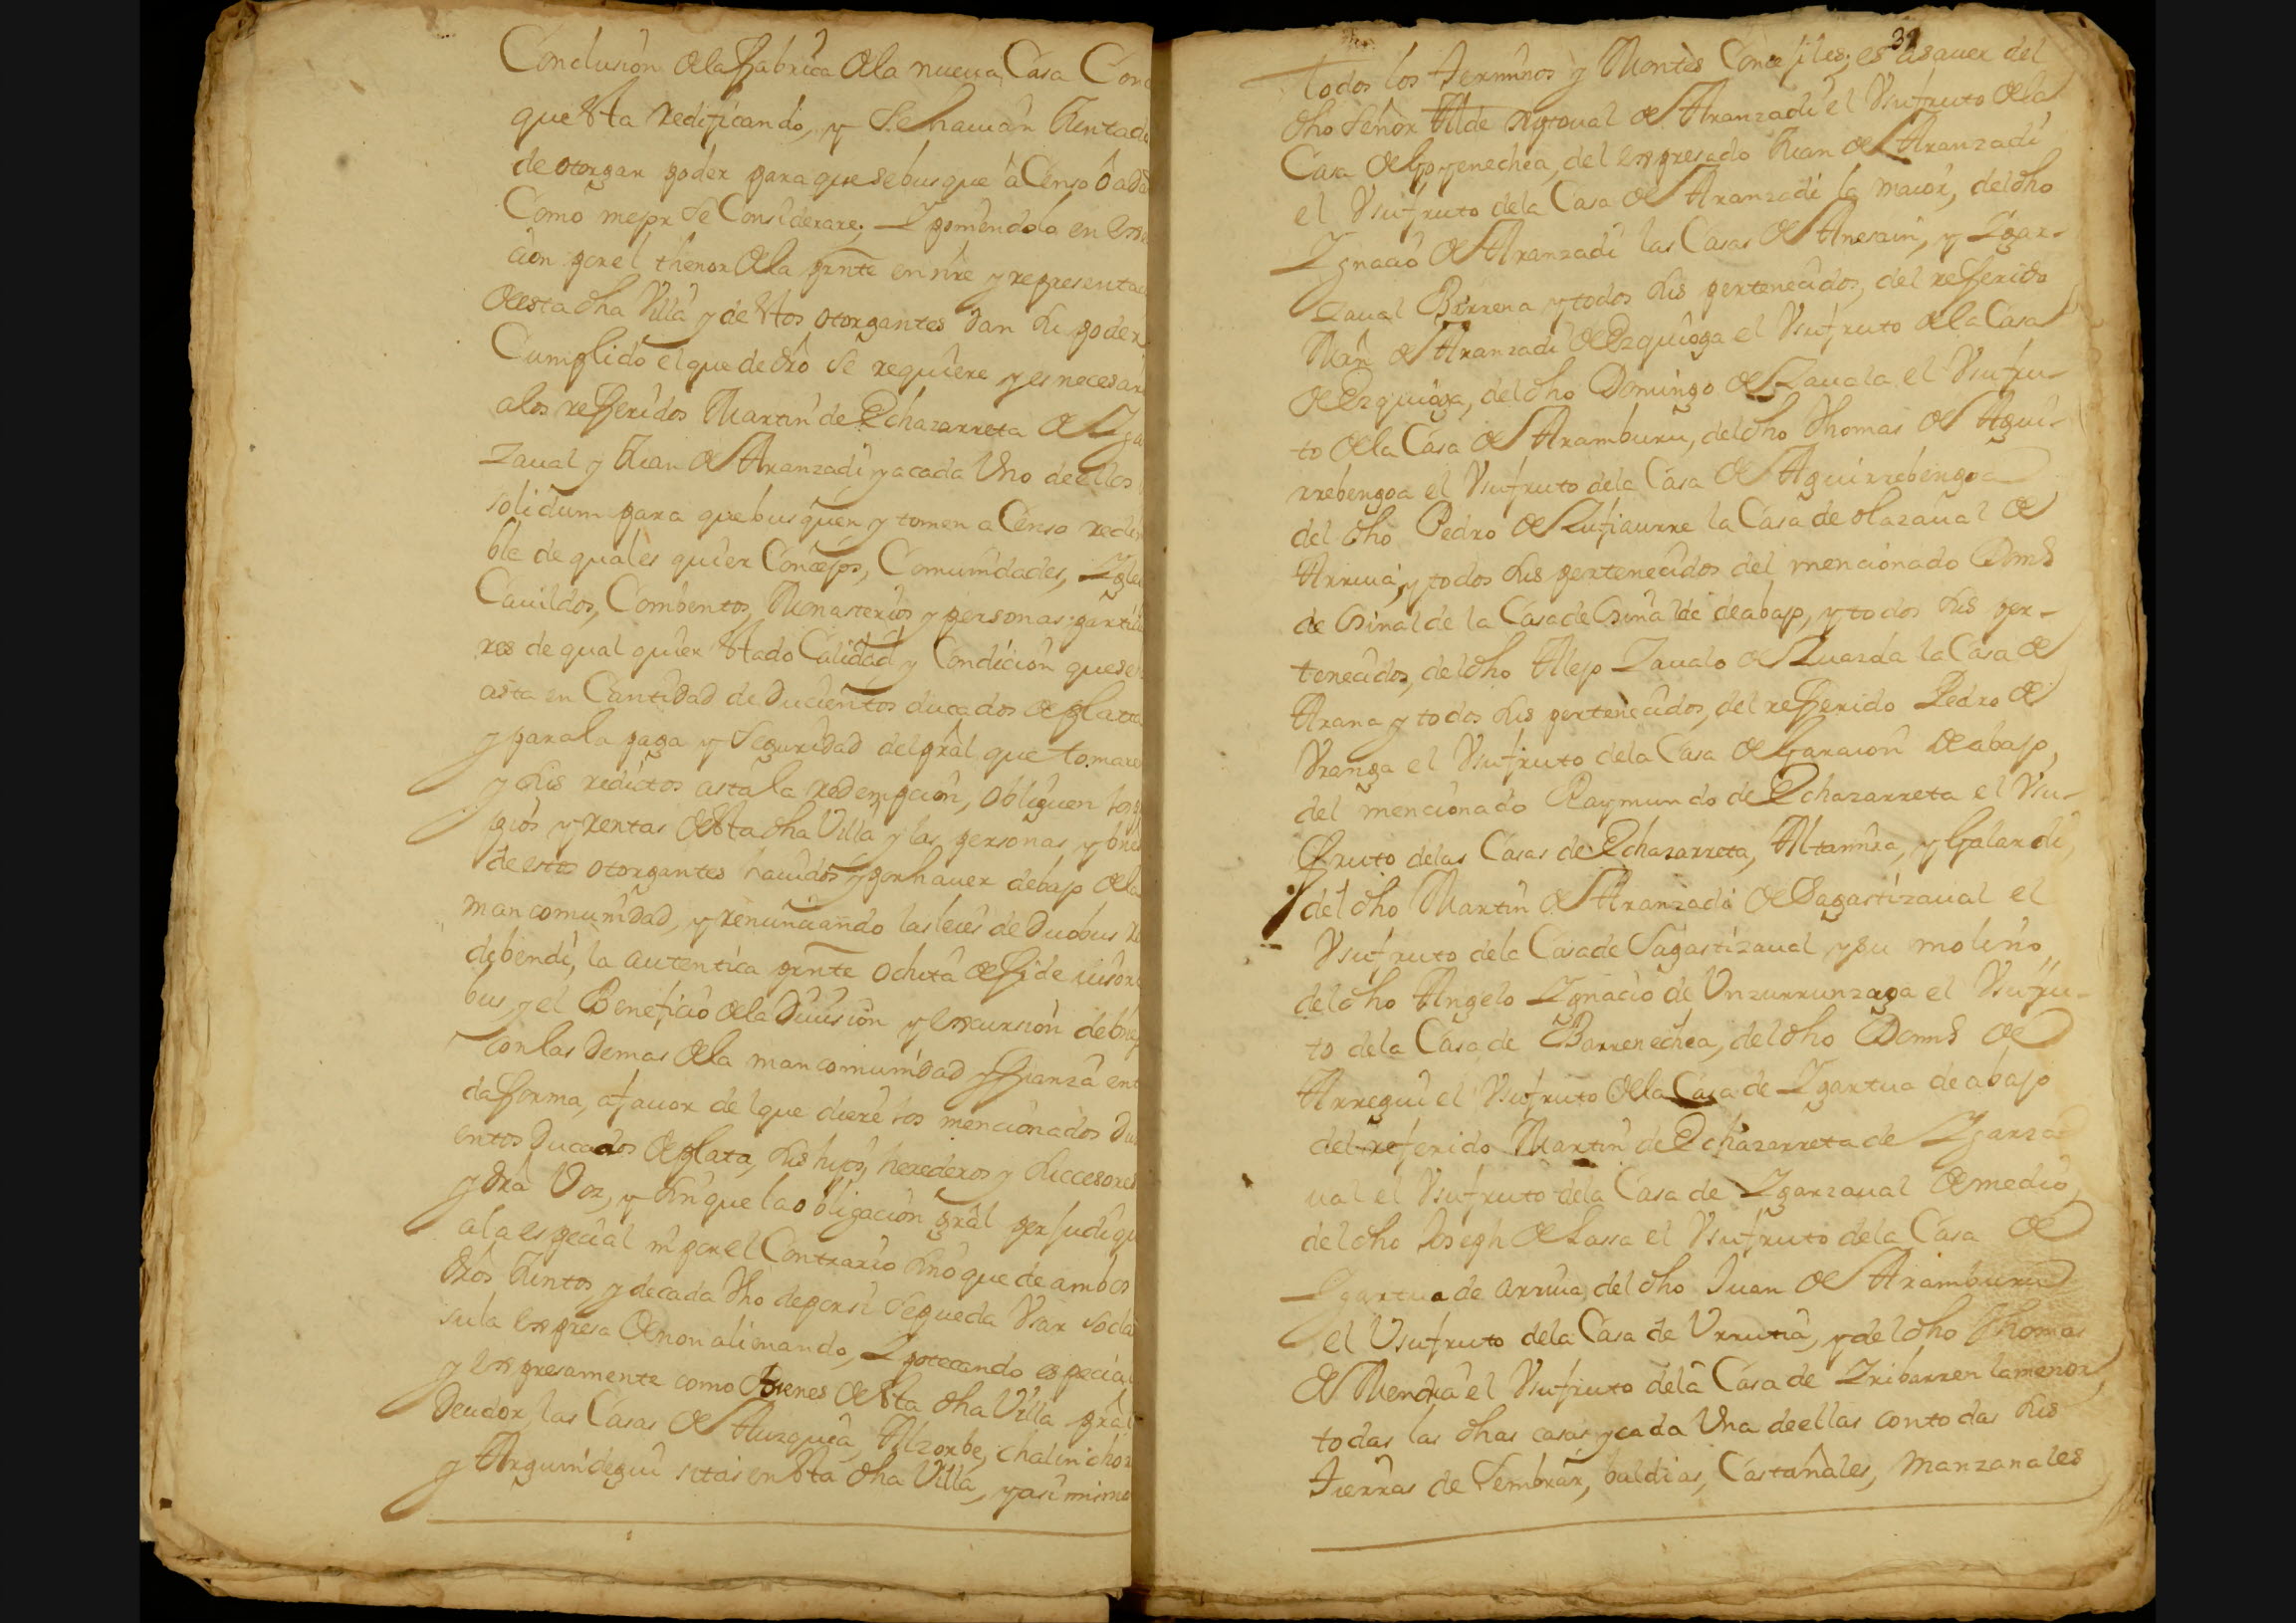 Conclusion de la fabrica de la nueva Casa Conc
que esta redificando, y se hauian Juntado
de otorgar poder para que se busque â Censo ô a da
Como mejor se Considerare; Y poniendolo en exe
cion por el thenor de la pnte en nre y representac
de esta dha Villa y de estos otorgantes dan su poder
Cumplido el que de dro se requiere y es necesari
a los refferidos Martin de Echazarreta de Yga
zaual y Juan de Aranzadi y a cada Uno de ellos
solidum para que busquen y tomen a Censo redim
ble de quales quier Concejos, Comunidades, Ygle
Cauildos, Combentos, Monasterios y personas particu
res de qual quier estado Calidad y Condicion que se
asta en Cantidad de Ducientos ducados de plata
y para la paga y Seguridad del pral que tomare
y sus redictos asta la redempcion, obliguen los
pios y rentas de esta dha Villa y las personas y bnes
de estos otorgantes hauidos y por hauer debajo de la
mancomunidad, y renunciando las leies de Duobus re
debendi, la autentica pnte ochita de fide iusori
bus, y el Beneficio de la Diuision y excursion de bnes
con las demas de la mancomunidad y fianza en
da forma, a fauor del que diere los mencionados Du
entos Ducados de plata, sus hijos, herederos y successores
y dra Voz, y sin que la obligacion gral perjudiqu
a la especial ni por el Contrario sino que de ambos
dros Juntos, y de cada Uno de por si se pueda Usar so cla
sula expresa de non alienando, Ypotecando especial
y expresamente como bienes de esta dha Villa pral
Deudor, las Casas de Auzquia, Alzorbe, chalinchor
y Arguindegui sitas en esta dha Villa, y asi mismo
39
todos los terminos y Montes Concejiles; es asauer del
dho Señor Alde Xptoual de Aranzadi el Usufruto de la
Casa de Goyenechea, del expresado Juan de Aranzadi
el Usufruto de la Casa de Aranzadi la maior, del dho
Ygnacio de Aranzadi las Casas de Anesain, y Ygar-
zaual Birrena y todos sus pertenecidos, del refferido
Mrn de Aranzadi de Ezquioga el Usufruto de la Casa
de Ezquioga, del dho Domingo de Zauala el Usufru-
to de la Casa de Aramburu, del dho Thomas de Agui-
rrebengoa el Usufruto de la Casa de Aguirrebengoa
del dho Pedro de Lusiaurre la Casa de olazaual de
Arriua, y todos sus pertenecidos del mencionado Doms
de Osinalde la Casa de Osinalde de abajo, y todos sus per-
tenecidos, del dho Alejo Zaualo de Luarda la Casa de
Arana y todos sus pertenecidos, del refferido Pedro de
Uranga el Usufruto de la Casa de Garacion de abajo,
del mencionado Raymundo de Echazarreta el Usu-
fruto de las Casas de Echazarreta, Altamira, y Galardi,
del dho Martin de Aranzadi de Sagastizaual el
Usufruto de la Casa de Sagastizaual y su molino,
del dho Angelo Ygnacio de Unzurrunzaga el Usufru-
to de la Casa de Barrenechea, del dho Doms de
Arregui el Usufruto de la Casa de Ygartua de abajo
del referido Martin de Echazarreta de Ygarza
ual el Usufruto de la Casa de Ygarzaual de medio,
del dho Joseph de Lassa el Usufruto de la Casa de
Ygartua de arriua, del dho Juan de Aramburu
el Usufruto de la Casa de Urrutia, y del dho Thomas
de Mendia el Usufruto de la Casa de Yribarren la menor,
todas las dhas casas y cada Una de ellas con todas sus
tierras de Sembrar, baldias, Castañales, Manzanales